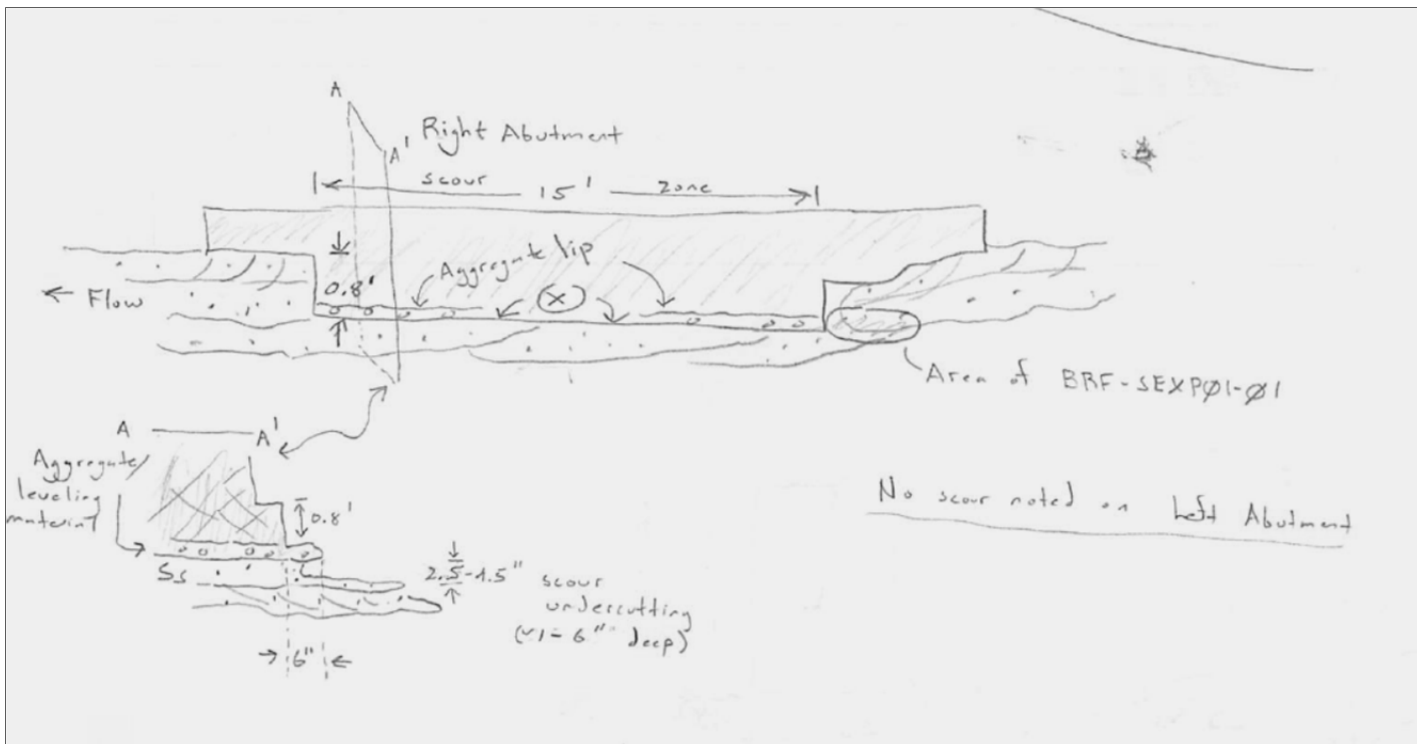 A
A'
Right Abutment
scour 15' zone
Aggregate lip
0.8'
← Flow
X
Area of BRF-SEXPØ1-Ø1
A A'
Aggregate/
leveling
material
0.8'
Ss
scour
undercutting
6" deep)
6"
No scour noted on Left Abutment